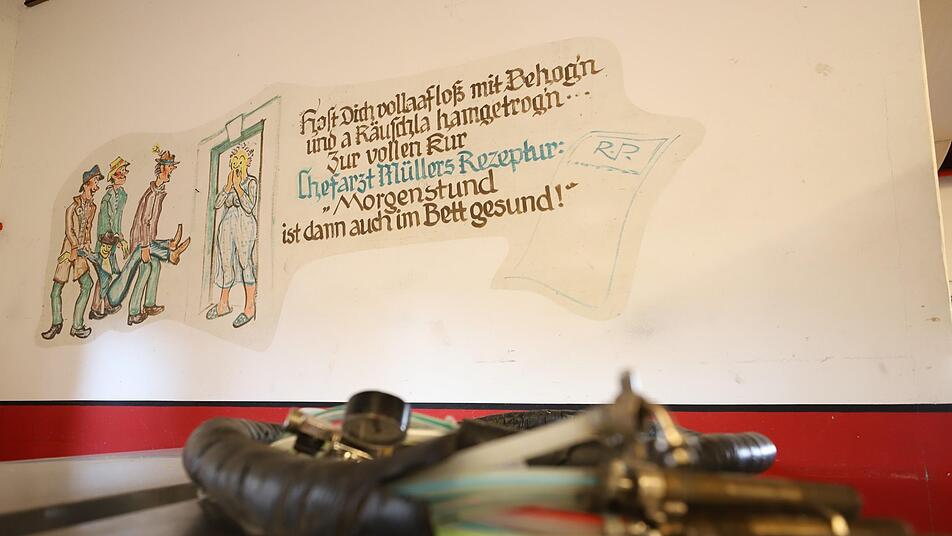 Host Dich vollaafloß mit Behog'n
und a Räuschla hamgetrog'n...
Zur vollen Kur
Chefarzt Müllers Rezeptur:
„Morgenstund
ist dann auch im Bett gesund!“
R.P.